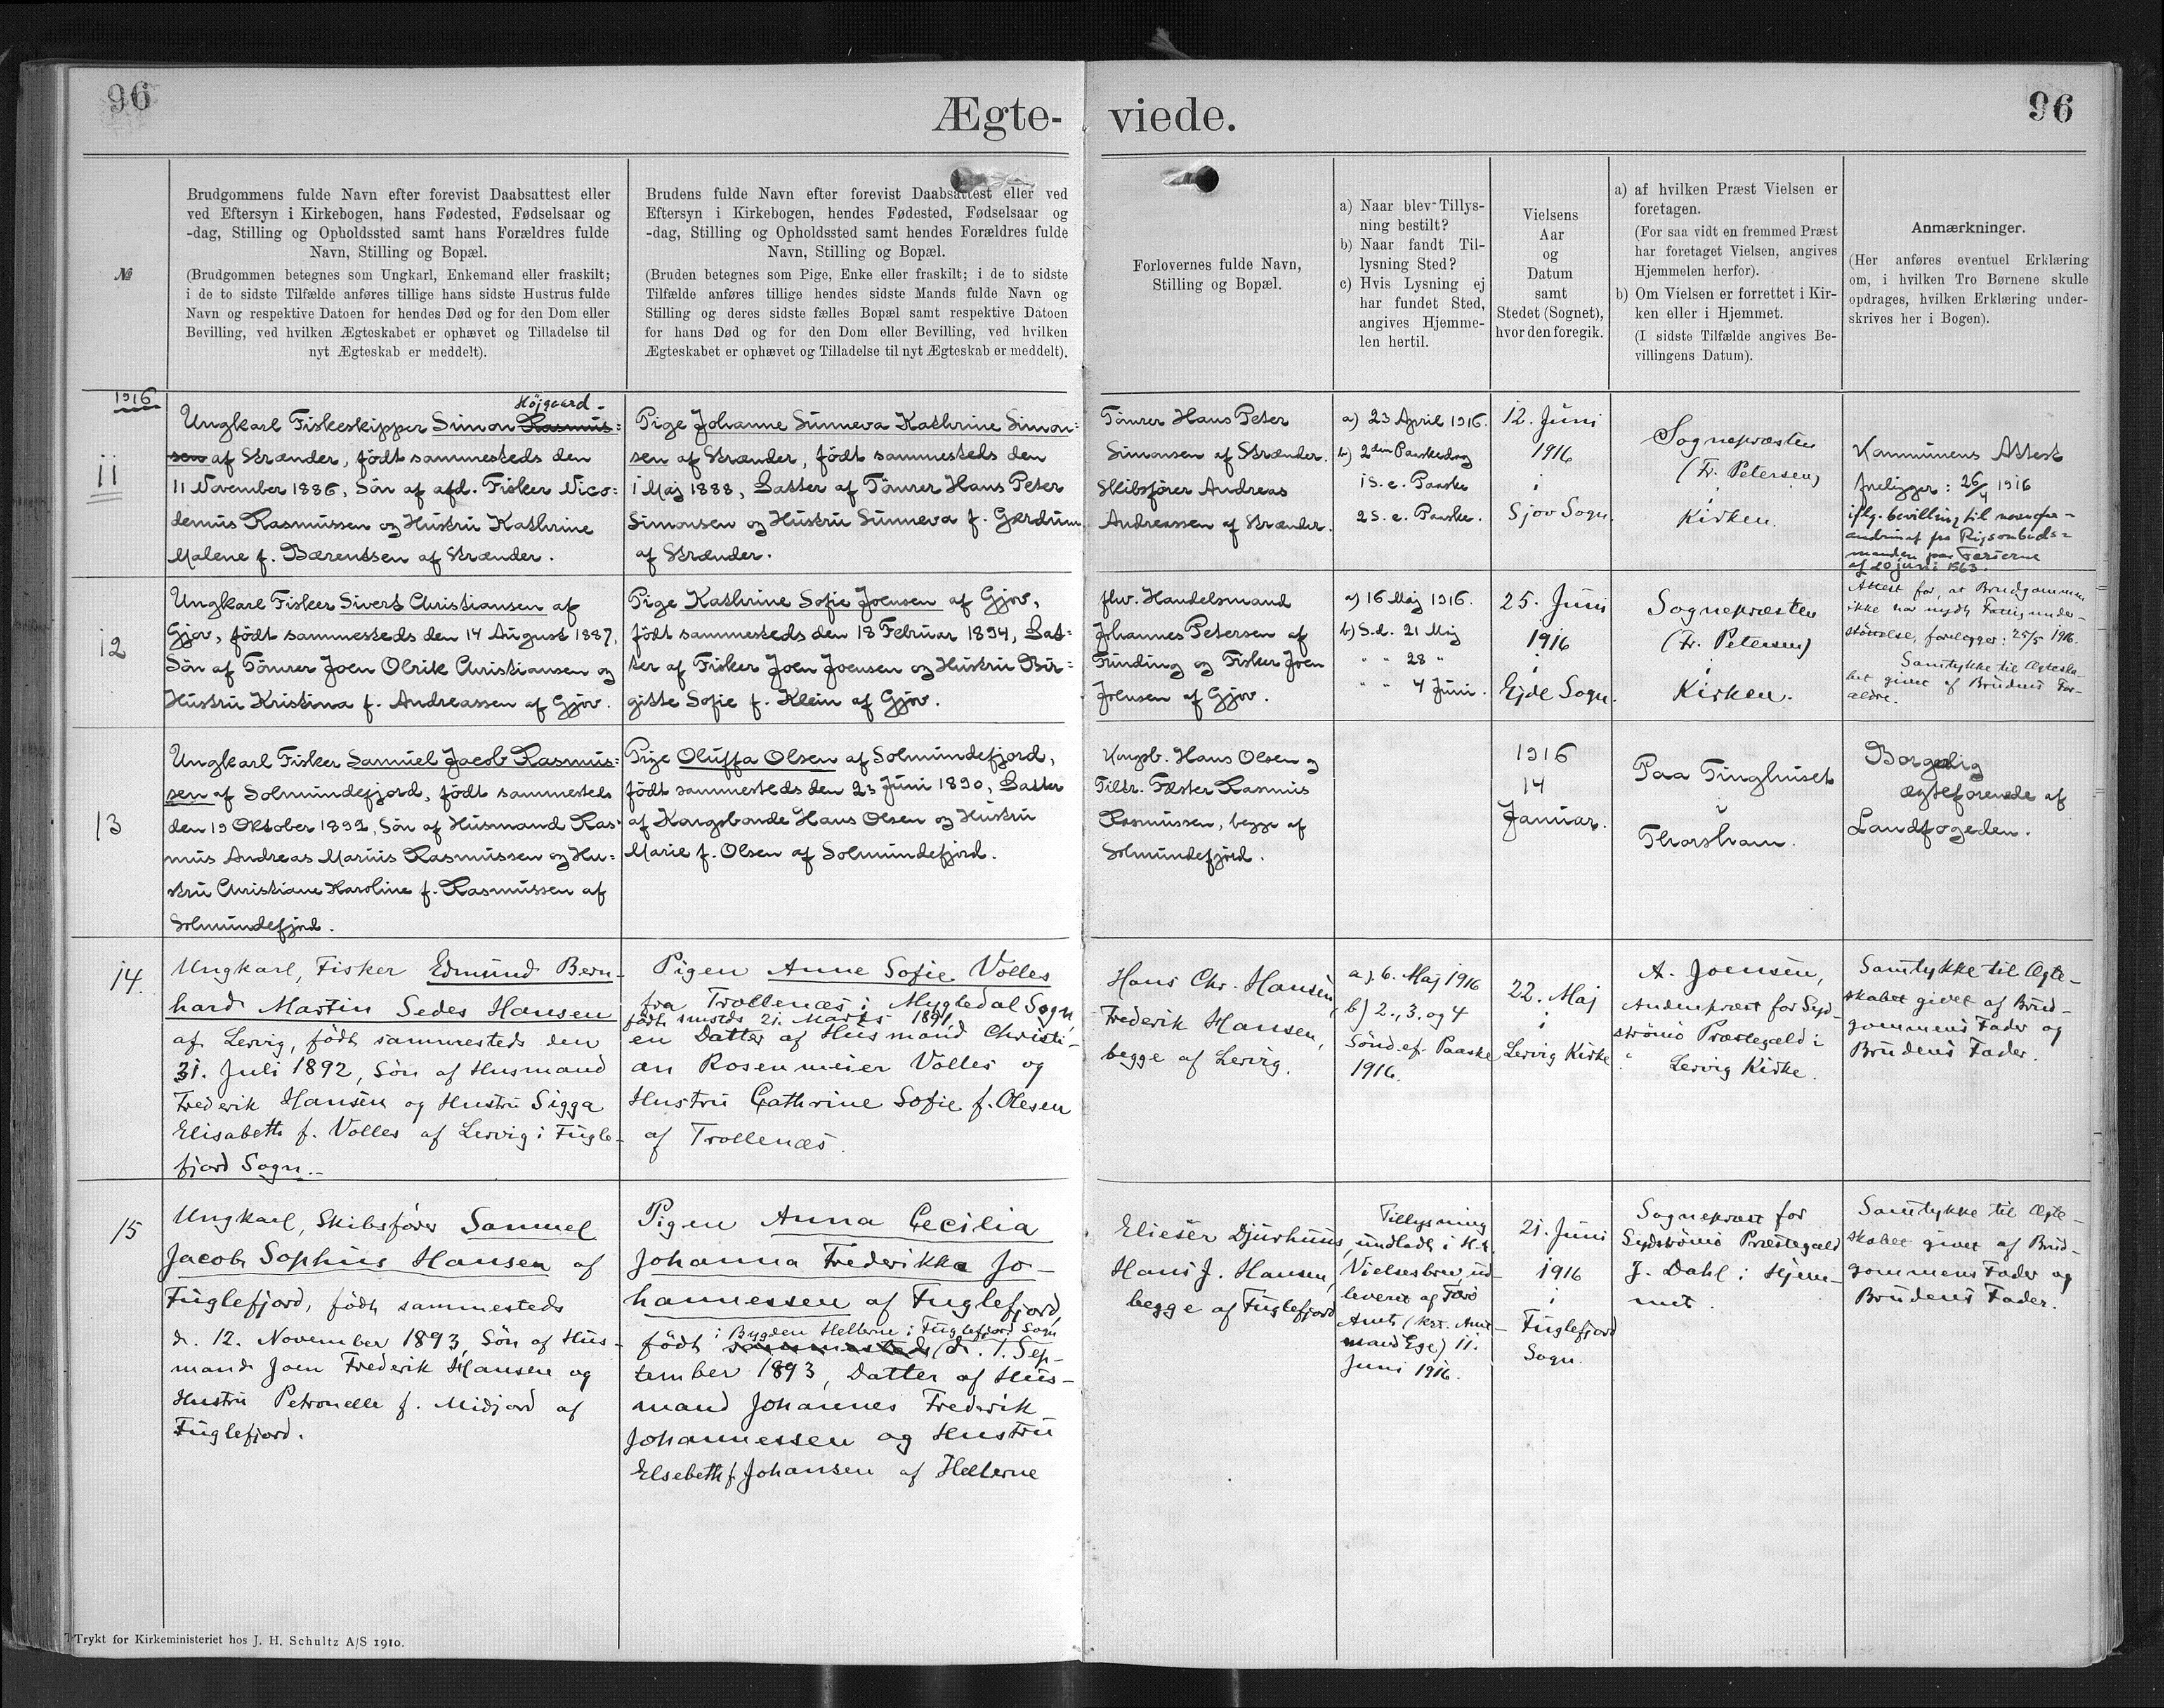 96
Ægte-
viede.
96
№
Brudgommens fulde Navn efter forevist Daabsattest eller
ved Eftersyn i Kirkebogen, hans Fødested, Fødselsaar og
-dag, Stilling og Opholdssted samt hans Forældres fulde
Navn, Stilling og Bopæl.
(Brudgommen betegnes som Ungkarl, Enkemand eller fraskilt;
i de to sidste Tilfælde anføres tillige hans sidste Hustrus fulde
Navn og respektive Datoen for hendes Død og for den Dom eller
Bevilling, ved hvilken Ægteskabet er ophævet og Tilladelse til
nyt Ægteskab er meddelt).
Brudens fulde Navn efter forevist Daabsattest eller ved
Eftersyn i Kirkebogen, hendes Fødested, Fødselsaar og
-dag, Stilling og Opholdssted samt hendes Forældres fulde
Navn, Stilling og Bopæl.
(Bruden betegnes som Pige, Enke eller fraskilt; i de to sidste
Tilfælde anføres tillige hendes sidste Mands fulde Navn og
Stilling og deres sidste fælles Bopæl samt respektive Datoen
for hans Død og for den Dom eller Bevilling, ved hvilken
Ægteskabet er ophævet og Tilladelse til nyt Ægteskab er meddelt).
Forlovernes fulde Navn,
Stilling og Bopæl.
a) Naar blev Tillys-
ning bestilt?
b) Naar fandt Til-
lysning Sted?
c) Hvis Lysning ej
har fundet Sted,
angives Hjemme-
len hertil.
Vielsens
Aar
og
Datum
samt
Stedet (Sognet),
hvor den foregik.
a) af hvilken Præst Vielsen er
foretagen.
(For saa vidt en fremmed Præst
har foretaget Vielsen, angives
Hjemmelen herfor).
b) Om Vielsen er forrettet i Kir-
ken eller i Hjemmet.
(I sidste Tilfælde angives Be-
villingens Datum).
Anmærkninger.
(Her anføres eventuel Erklæring
om, i hvilken Tro Børnene skulle
opdrages, hvilken Erklæring under-
skrives her i Bogen).
1916
11
Højgaard.
Ungkarl Fiskeskipper Simon Rasmus=
sen af Strænder, født sammesteds den
11 November 1886, Søn af afd. Fisker Nico=
demus Rasmussen og Hustru Kathrine
Malene f. Bærentsen af Strænder.
Pige Johanne Sunneva Kathrine Simon=
sen af Strænder, født sammesteds den
1 Maj 1888, Datter af Tømrer Hans Peter
Simonsen og Hustru Sunneva f. Gærdum
af Strænder.
Tømrer Hans Peter
Simonsen af Strænder.
Skibsfører Andreas
Andreassen af Strænder.
a) 23 April 1916.
b) 2den Paaskedag
1 S. e. Paaske
2 S. e. Paaske.
12. Juni
1916
i
Sjov Sogn.
Sognepræsten
(Fr. Petersen)
i
Kirken.
Kommunens Attest
foreligger: 26/4 1916
iflg. bevilling til navnefor-
andring fra Rigsombuds=
manden paa Færøerne
af 20 juni 1963.
12
Ungkarl Fisker Sivert Christiansen af
Gjov, født sammesteds den 14 August 1887,
Søn af Tømrer Joen Olrik Christiansen og
Hustru Kristina f. Andreassen af Gjov.
Pige Kathrine Sofie Joensen af Gjov,
født sammesteds den 18 Februar 1894, Dat=
ter af Fisker Joen Joensen og Hustru Bir=
gitte Sofie f. Klein af Gjov.
fhv. Handelsmand
Johannes Petersen af
Funding og Fisker Joen
Joensen af Gjov.
a) 16 Maj 1916.
b) S. d. 21 Maj
" " 28 "
" " 4 Juni.
25. Juni
1916
i
Ejde Sogn.
Sognepræsten
(Fr. Petersen)
i
Kirken.
Attest for, at Brudgommen
ikke har nydt Fattigunder-
støttelse, foreligger: 25/5 1916.
Samtykke til Ægteska-
bet givet af Brudens For-
ældre.
13
Ungkarl Fisker Samuel Jacob Rasmus=
sen af Solmundefjord, født sammesteds
den 19 Oktober 1892, Søn af Husmand Ras=
mus Andreas Marius Rasmussen og Hu-
stru Christiane Karoline f. Rasmussen af
Solmundefjord.
Pige Oluffa Olsen af Solmundefjord,
født sammesteds den 23 Juni 1890, Datter
af Kongsbonde Hans Olsen og Hustru
Marie f. Olsen af Solmundefjord.
Kongsb. Hans Olsen og
Tiltr. Fæster Rasmus
Rasmussen, begge af
Solmundefjord.
1916
14
Januar.
Paa Tinghuset
i
Thorshavn.
Borgerlig
ægteforenede af
Landfogeden.
14.
Ungkarl, Fisker Edmund Bern-
hard Martin Sedes Hansen
af Lervig, født sammesteds den
31. Juli 1892, Søn af Husmand
Frederik Hansen og Hustru Sigga
Elisabeth f. Volles af Lervig i Fugle-
fjord Sogn.
Pigen Anne Sofie Volles
fra Trollenæs i Mygledal Sogn,
født smsteds 21. Marts 1891,
en Datter af Husmand Christi-
an Rosenmeier Volles og
Hustru Cathrine Sofie f. Olesen
af Trollenæs.
Hans Chr. Hansen,
Frederik Hansen,
begge af Lervig.
a) 6. Maj 1916
b) 2., 3. og 4
Sønd. ef. Paaske
1916.
22. Maj
i
Lervig Kirke
A. Joensen,
Andenpræst for Syd-
strømø Præstegæld i
Lervig Kirke.
Samtykke til Ægte-
skabet givet af Brud-
gommens Fader og
Brudens Fader.
15
Ungkarl, Skibsfører Samuel
Jacob Sophus Hansen af
Fuglefjord, født sammesteds
d. 12. November 1893, Søn af Hus-
mand Joen Frederik Hansen og
Hustru Petronelle f. Midjord af
Fuglefjord.
Pigen Anna Cecilia
Johanna Frederikke Jo-
hannessen af Fuglefjord,
i Bygden Hellerne i Fuglefjord Sogn
født sammesteds d. 1. Sep-
tember 1893, Datter af Hus-
mand Johannes Frederik
Johannessen og Hustru
Elsebeth f. Johansen af Hellerne
Elieser Djurhuus,
Hans J. Hansen,
begge af Fuglefjord
Tillysning
undladt i H. t.
Vielsesbrev ud-
leveret af Færø
Amt (kst. Amt-
mand Ege) 11.
Juni 1916.
21. Juni
1916
i
Fuglefjord
Sogn.
Sognepræst for
Sydstrømø Præstegæld
J. Dahl i Hjem-
met.
Samtykke til Ægte-
skabet givet af Brud-
gommens Fader og
Brudens Fader.
Trykt for Kirkeministeriet hos J. H. Schultz A/S 1910.